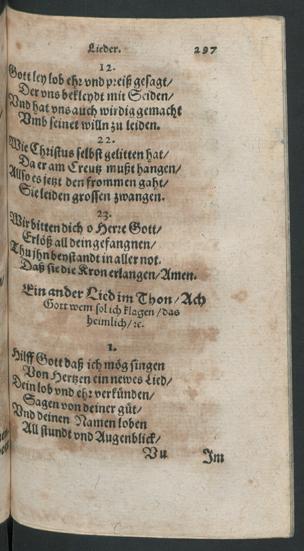 Lieder. 297
12.
Gott sey lob ehr vnd preiß gesagt/
Der vns bekleydt mit Seiden/
Vnd hat vns auch wirdig gemacht
Vmb seinet willn zu leiden.
22.
Wie Christus selbst gelitten hat/
Da er am Creutz mußt hangen/
Also es jetzt den frommen gaht/
Sie leiden grossen zwangen.
23.
Wir bitten dich o Herre Gott/
Erlöß all dein gefangnen/
Thu jhn beystandt in aller not.
Daß sie die Kron erlangen/Amen.
Ein ander Lied im Thon/Ach
Gott wem sol ich klagen/das
heimlich/ꝛc.
1.
Hilff Gott daß ich mög singen
Von Hertzen ein newes Lied/
Dein lob vnd ehr verkünden/
Sagen von deiner güt/
Vnd deinen Namen loben
All stundt vnd Augenblick/
Vu Im